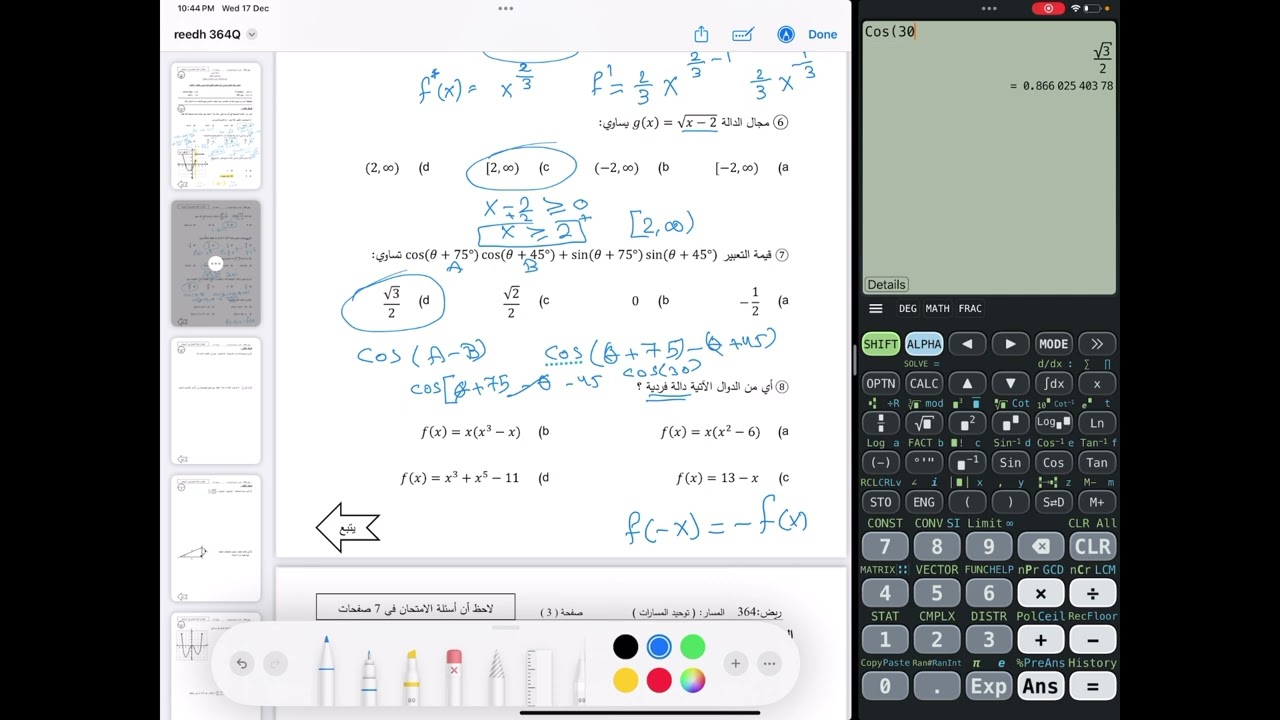 10:44 PM Wed 17 Dec
reedh 364Q
Done
f(x) = x^(2/3) f' = 2/3 x^(2/3 - 1) 2/3 x^(-1/3)
⑥ مجال الدالة r(x) = √(x−2) يساوي:
[−2,∞) (a (−2,∞) (b [2,∞) (c (2,∞) (d
x - 2 ≥ 0
+2 +
x ≥ 2 [2,∞)
⑦ قيمة التعبير cos(θ + 75°) cos(θ + 45°) + sin(θ + 75°) sin(θ + 45°) يساوي:
A B
−1/2 (a 0 (b √2/2 (c √3/2 (d
cos(A-B) cos(θ+75)-(θ+45)
cos[θ+75-θ-45 cos(30)
⑧ أي من الدوال الآتية دالة فردية ؟
f(x) = x(x² − 6) (a f(x) = x(x³ − x) (b
f(x) = 13 − x (c f(x) = x³ + x⁵ − 11 (d
f(-x) = -f(x)
يتبع
لاحظ أن أسئلة الامتحان في 7 صفحات
صفحة ( 3 )
المسار: ( توحيد المسارات )
ريض:364
Cos(30
√3/2
= 0.866 025 403 78
Details
DEG MATH FRAC
SHIFT ALPHA ◀ ▶ MODE >>
SOLVE = d/dx : ∑ ∏
OPTN CALC ▲ ▼ ∫dx x
÷R mod Cot Cot⁻¹ t
√ ■² Log Ln
Log a FACT b ■! c Sin⁻¹ d Cos⁻¹ e Tan⁻¹ f
(−) °'" ■⁻¹ Sin Cos Tan
RCLCRLv ∠ i ■| x , y z M− m
STO ENG ( ) S⇄D M+
CONST CONV SI Limit ∞ CLR All
7 8 9 ⌫ CLR
MATRIX VECTOR FUNC HELP nPr GCD nCr LCM
4 5 6 × ÷
STAT CMPLX DISTR Pol Ceil Rec Floor
1 2 3 + −
Copy Paste Ran# RanInt π e % PreAns History
0 . Exp Ans =